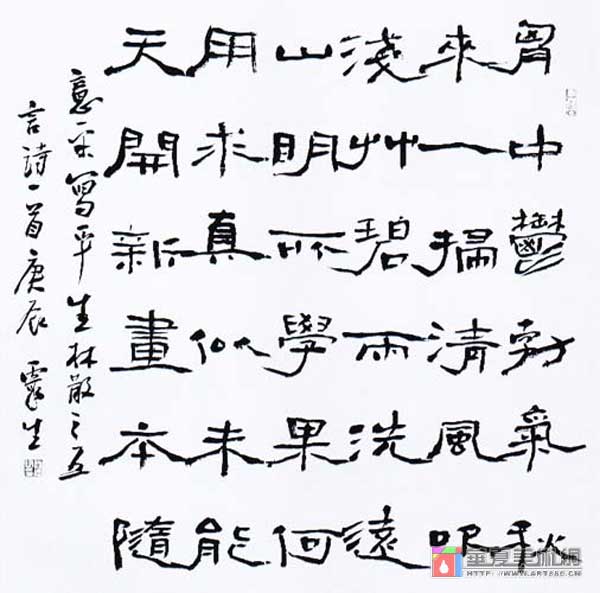 胷中鬱勃氣秋
來一掃清風吹
淺艸碧雨洗遠
山明所學果何
用求真似未能
天開新畫本隨
意寫平生林散之五
言詩一首庚辰
華夏美術網